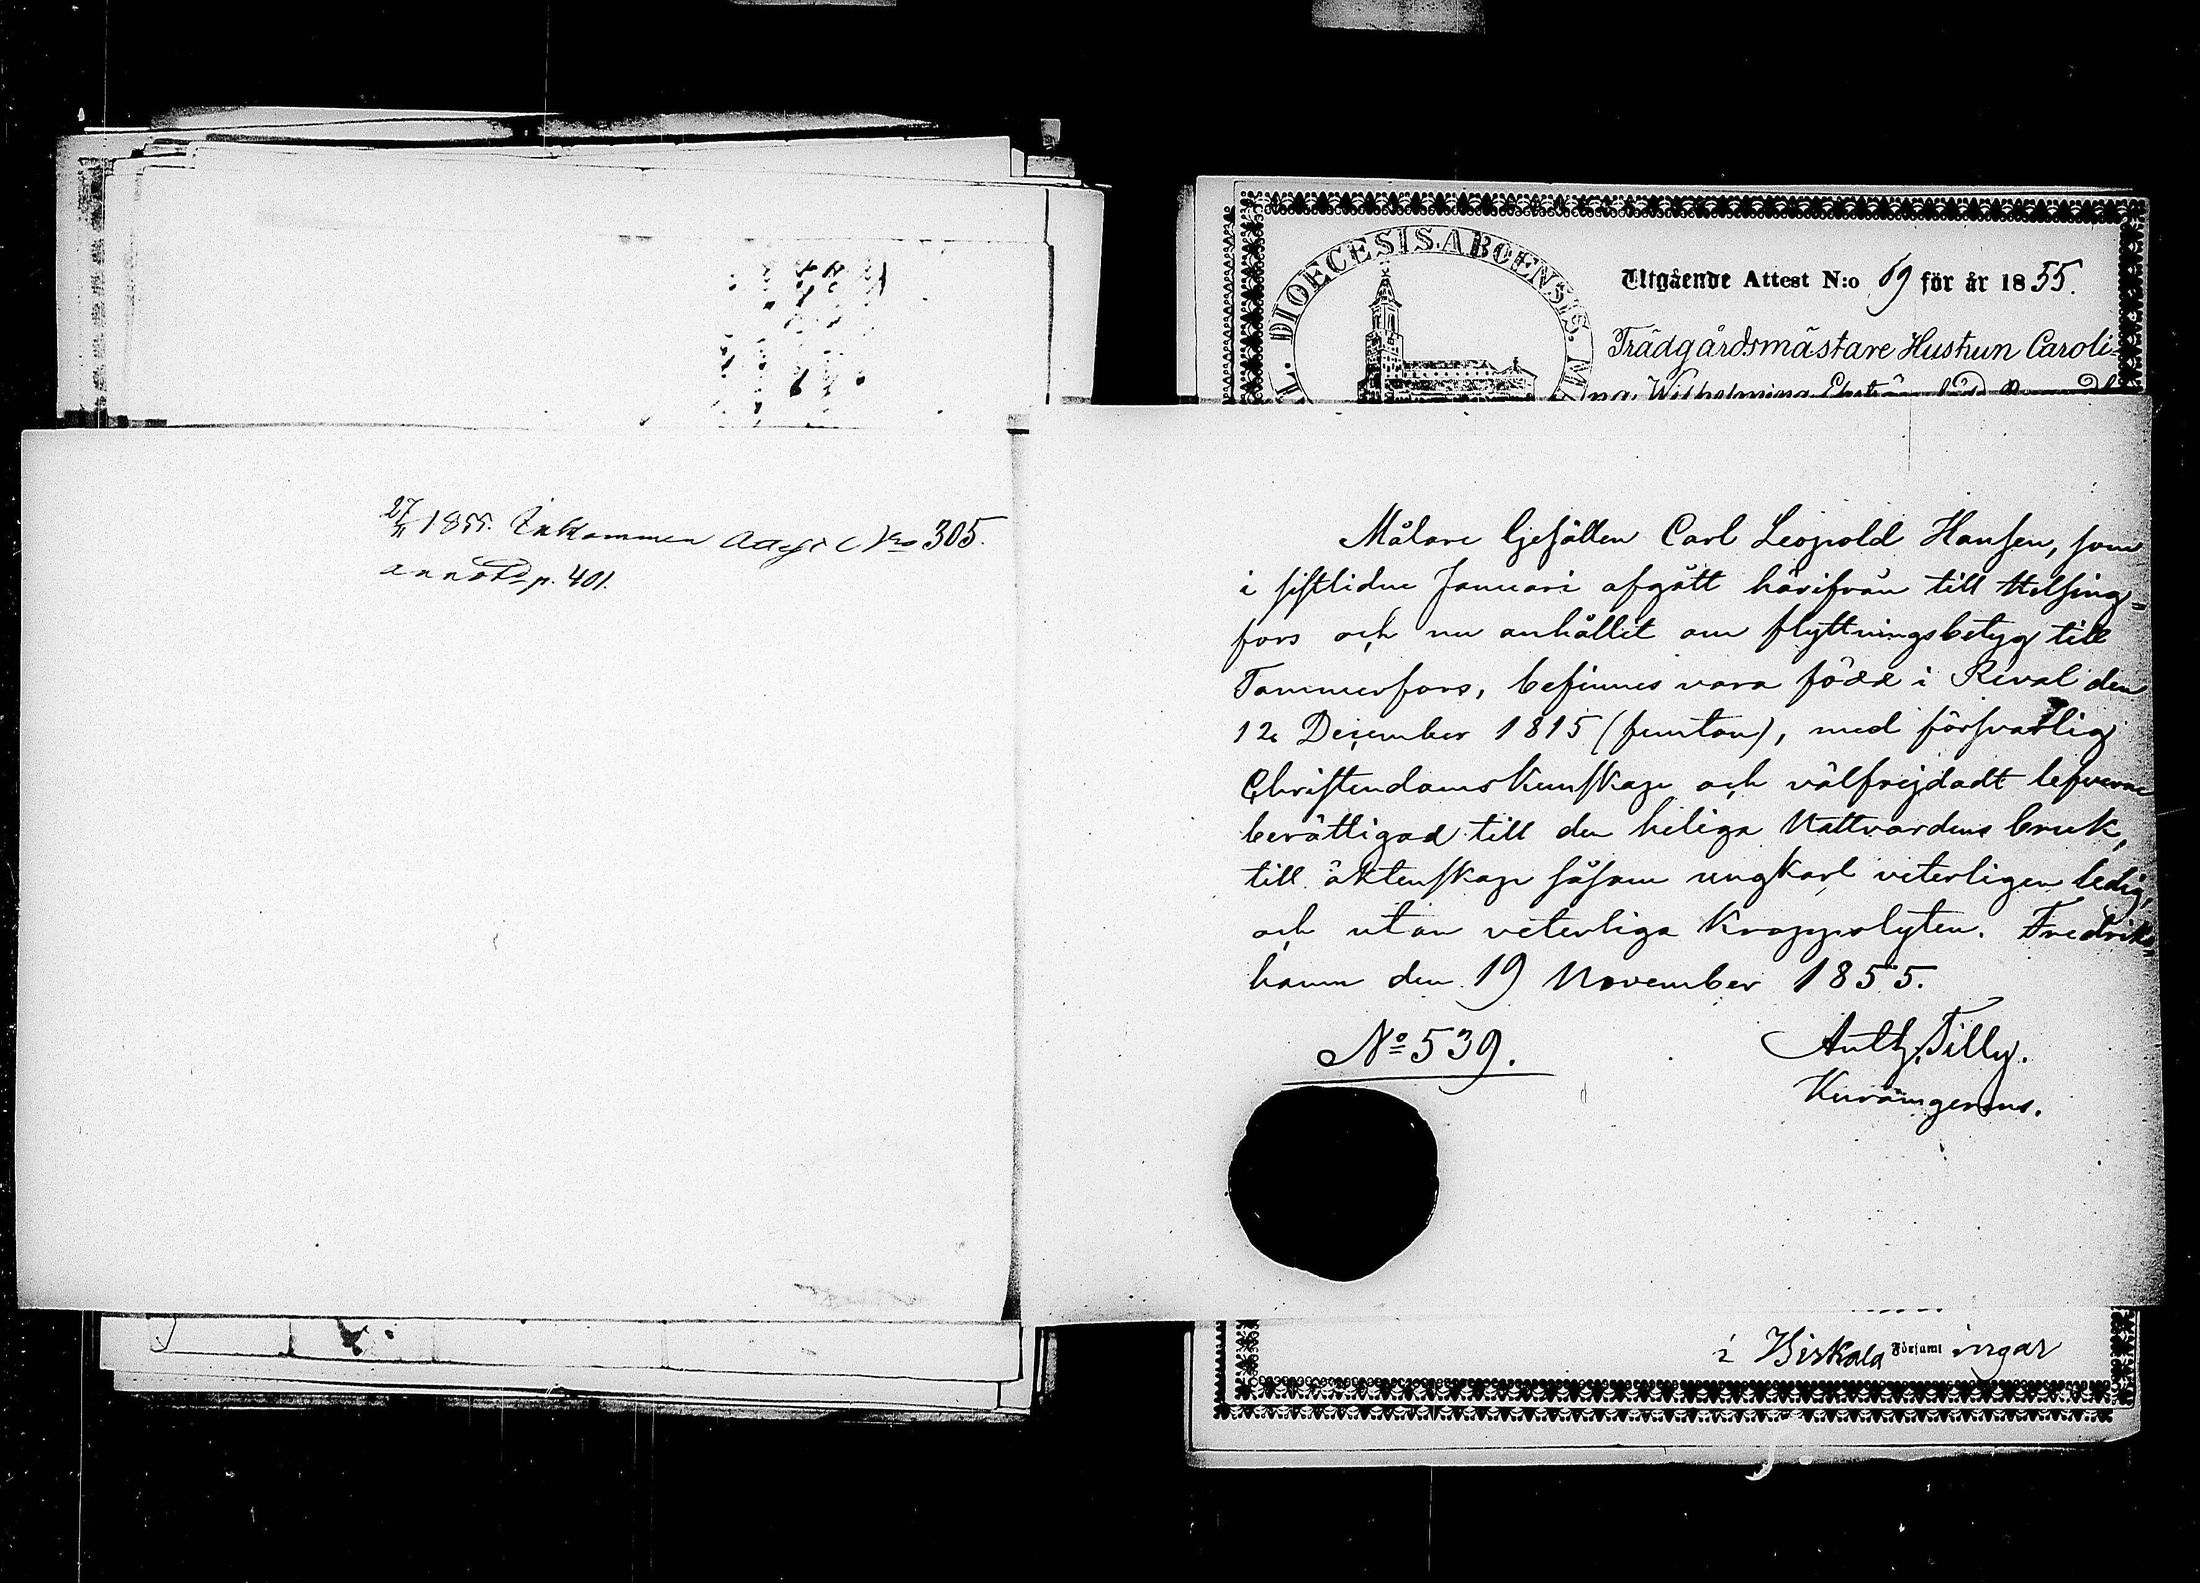 27/11 1855. Inkommen Attest No 305.
annot. p. 401.
DIOECESIS. ABOENSIS. M
Utgående Attest N:o 69 för år 1855.
Trädgårdsmästare Hustrun Caroli-
na Wilhelmina
Målare Gesällen Carl Leopold Hansen, som
i sistlidne Januari afgått härifrån till Helsing=
fors och nu anhållit om flyttningsbetyg till
Tammerfors, befinnes vara född i Reval den
12 December 1815 (femton), med försvarlig
Christendomskunskap och välfrejdadt lefverne
berättigad till den heliga Nattvardens bruk,
till äktenskap såsom ungkarl veterligen ledig,
och utan veterliga Kroppslyten. Fredriks
hamn den 19 November 1855.
No 539.
Anth. Tilly.
i Biskala Församl ingar